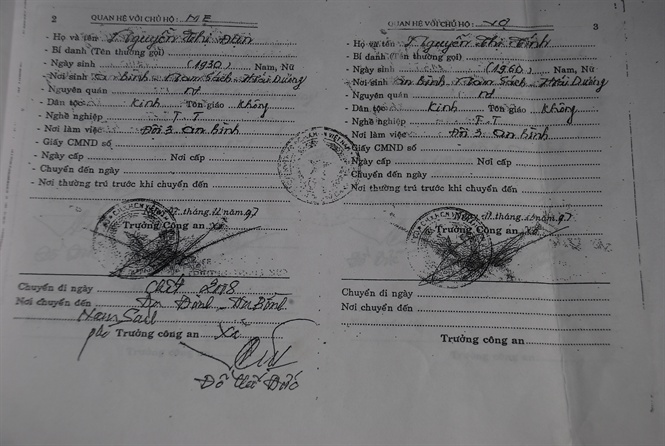 2 QUAN HỆ VỚI CHỦ HỘ: MẸ
- Họ và tên Nguyễn Thị Đản
- Bí danh (Tên thường gọi)
- Ngày sinh (1930) Nam, Nữ
- Nơi sinh An Bình Nam Sách Hải Dương
- Nguyên quán nt
- Dân tộc Kinh Tôn giáo không
- Nghề nghiệp T.T
- Nơi làm việc Đội 3 An bình
- Giấy CMND số
- Ngày cấp Nơi cấp
- Chuyển đến ngày
- Nơi thường trú trước khi chuyển đến
tháng 12 năm 97
Trưởng Công an xã
Chuyển đi ngày chết 2008
Nơi chuyển đến An Bình
Nam Sách
phó Trưởng công an Xã
QUAN HỆ VỚI CHỦ HỘ: VỢ 3
- Họ và tên Nguyễn Thị
- Bí danh (Tên thường gọi)
- Ngày sinh (1960) Nam, Nữ
- Nơi sinh An Bình Nam Sách Hải Dương
- Nguyên quán nt
- Dân tộc Kinh Tôn giáo không
- Nghề nghiệp T.T
- Nơi làm việc Đội 3 An bình
- Giấy CMND số
- Ngày cấp Nơi cấp
- Chuyển đến ngày
- Nơi thường trú trước khi chuyển đến
tháng 12 năm 97
Trưởng Công an xã
Chuyển đi ngày
Nơi chuyển đến
Trưởng công an